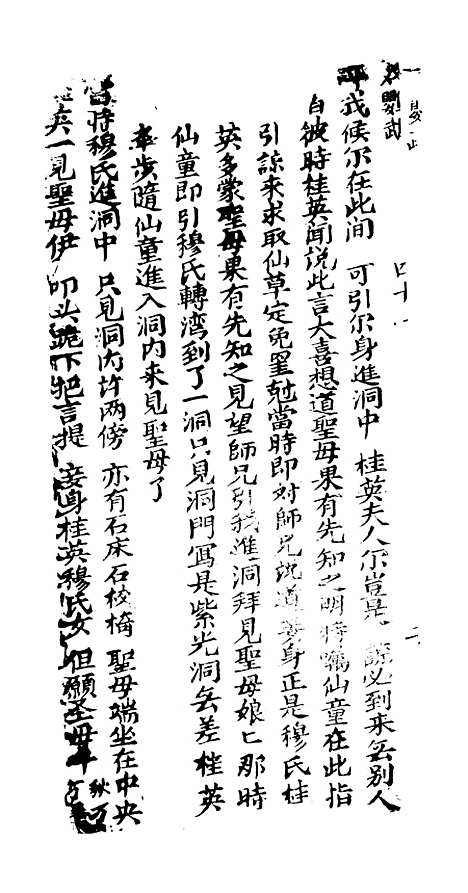 武候尔在此间 可引尔身進洞中 桂英夫人尔豈是 必到来無别人
白彼時桂英闻説此言大喜想道聖母果有先知之明特嘱仙童在此指
引諒来求取仙草定免罣尅當時即对師兄説道妾身正是穆氏桂
英多蒙聖母果有先知之見望師兄引我進洞拜見聖母娘匕那時
仙童即引穆氏轉湾到了一洞只見洞門寫是紫光洞無差桂英
牵步隨仙童進入洞内来見聖母了
當時穆氏進洞中 只見洞内竹两傍 亦有石床石校椅 聖母端坐在中央
英一見聖母伊 叩头跪下把言提 妾身桂英穆氏女 但願圣母